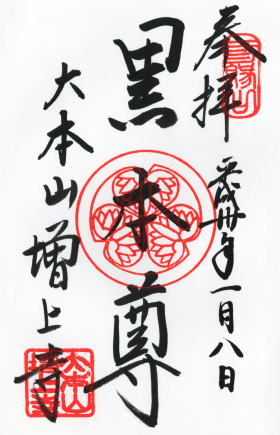 奉拝
平成卅年一月八日
黒本尊
大本山増上寺